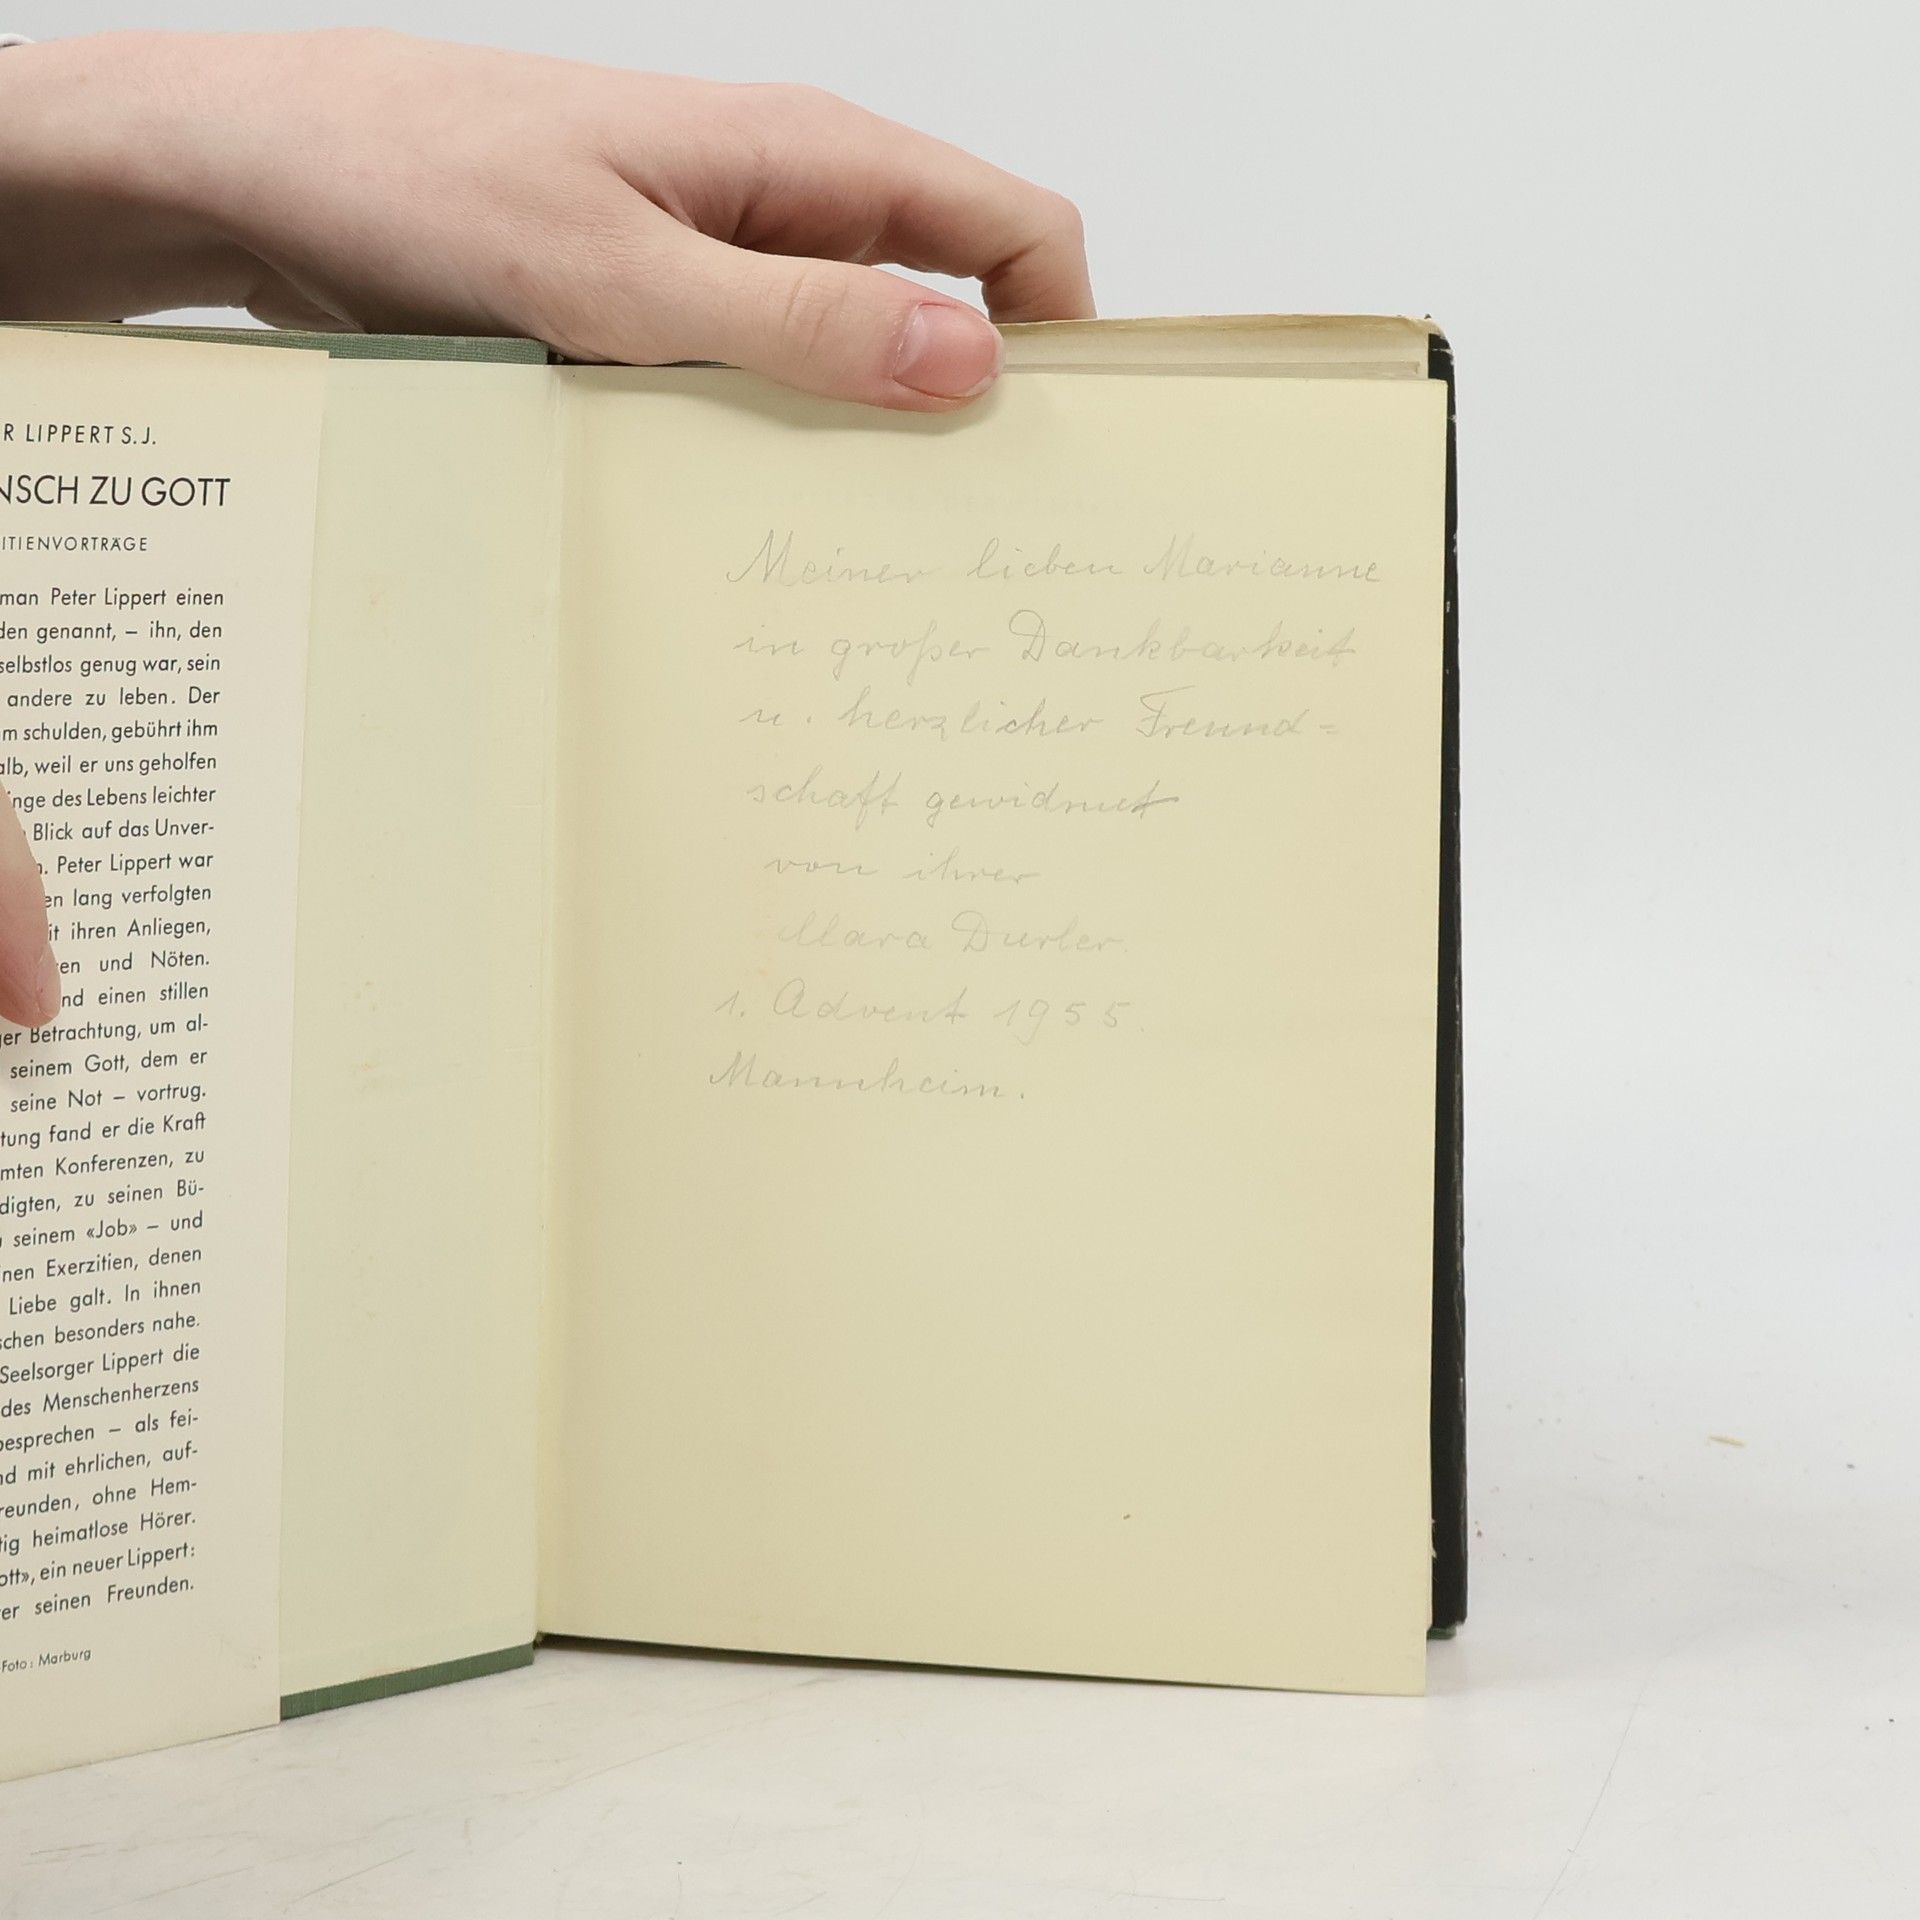 R LIPPERT S.J.
NSCH ZU GOTT
ITIENVORTRÄGE
man Peter Lippert einen
den genannt, – ihn, den
selbstlos genug war, sein
andere zu leben. Der
m schulden, gebührt ihm
alb, weil er uns geholfen
inge des Lebens leichter
Blick auf das Unver-
n. Peter Lippert war
en lang verfolgten
it ihren Anliegen,
ren und Nöten.
nd einen stillen
ger Betrachtung, um al-
seinem Gott, dem er
seine Not – vortrug.
tung fand er die Kraft
mten Konferenzen, zu
digten, zu seinen Bü-
u seinem «Job» – und
inen Exerzitien, denen
Liebe galt. In ihnen
schen besonders nahe.
Seelsorger Lippert die
des Menschenherzens
besprechen – als fei-
nd mit ehrlichen, auf-
reunden, ohne Hem-
tig heimatlose Hörer.
ott», ein neuer Lippert:
er seinen Freunden.
Foto: Marburg
Meiner lieben Marianne
in großer Dankbarkeit
u. herzlicher Freund=
schaft gewidmet
von ihrer
Mara Durler.
1. Advent 1955.
Mannheim.